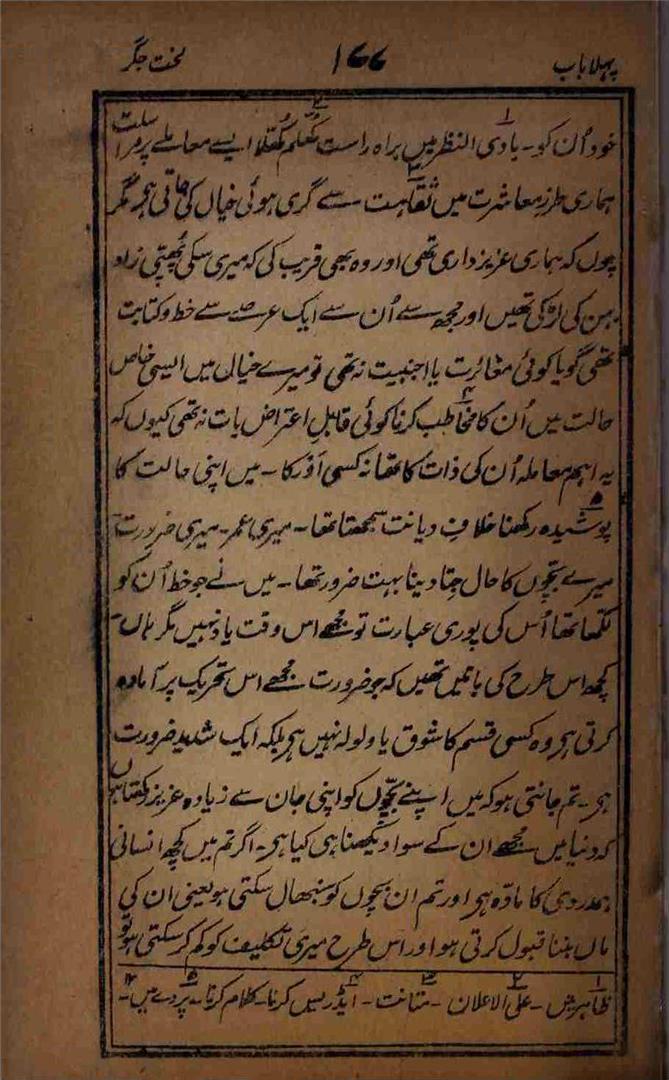 پہلا باب ۱۶۶ لخت جگر
خود اُن کو۔ بادی النظر میں براہ راست کُھلم کُھلا ایسے معاملے پر مراسلت
ہماری طرزِ معاشرت میں ثقاہت سے گری ہوئی خیال کی جاتی ہے مگر
چوں کہ ہماری عزیز داری تھی اور وہ بھی قریب کی کہ میری سگی پُھپّی زاد
بہن کی لڑکی تھیں اور مجھ سے اُن سے ایک عرصے سے خط و کتابت
تھی گویا کوئی مغائرت یا اجنبیت نہ تھی تو میرے خیال میں ایسی خاص
حالت میں اُن کا مخاطب کرنا کوئی قابلِ اعتراض بات نہ تھی کیوں کہ
یہ اہم معاملہ اُن کی ذات کا تھا نہ کسی اَوْر کا۔ میں اپنی حالت کا
پوشیدہ رکھنا خلافِ دیانت سمجھتا تھا۔ میری عمر۔ میری ضرورت۔
میرے بچّوں کا حال جتا دینا بہت ضرور تھا۔ میں نے جو خط اُن کو
لکھا تھا اُس کی پوری عبارت تو مجھے اس وقت یاد نہیں مگر ہاں
کچھ اس طرح کی باتیں تھیں کہ جو ضرورت مجھے اس تحریک پر آمادہ
کرتی ہی وہ کسی قسم کا شوق یا ولولہ نہیں ہی بلکہ ایک شدید ضرورت
ہی۔ تم جانتی ہو کہ میں اپنے بچّوں کو اپنی جان سے زیادہ عزیز رکھتا ہوں
کہ دنیا میں مجھے ان کے سوا دیکھنا ہی کیا ہی۔ اگر تم میں کچھ انسانی
ہمدردی کا مادّہ ہی اور تم ان بچوں کو سنبھال سکتی ہو یعنی ان کی
ماں بننا قبول کرتی ہو اور اس طرح میری تکلیف کو کم کر سکتی ہو تو
۱ ظاہر میں۔ ۲ علی الاعلان۔ ۳ متانت۔ ۴ ایڈریس کرنا۔ کلام کرنا۔ ۵ پردے میں۔ ۱۲